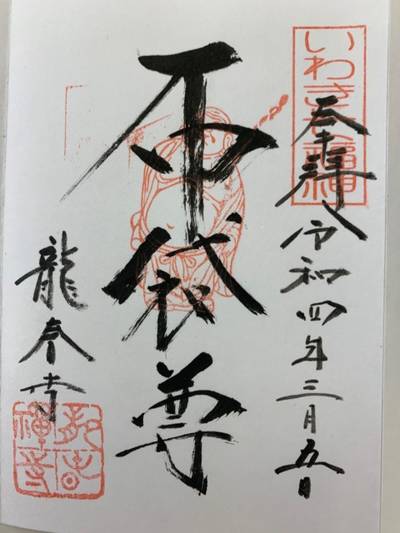 いわき七福神
奉拝
令和四年三月五日
布袋尊
龍春寺